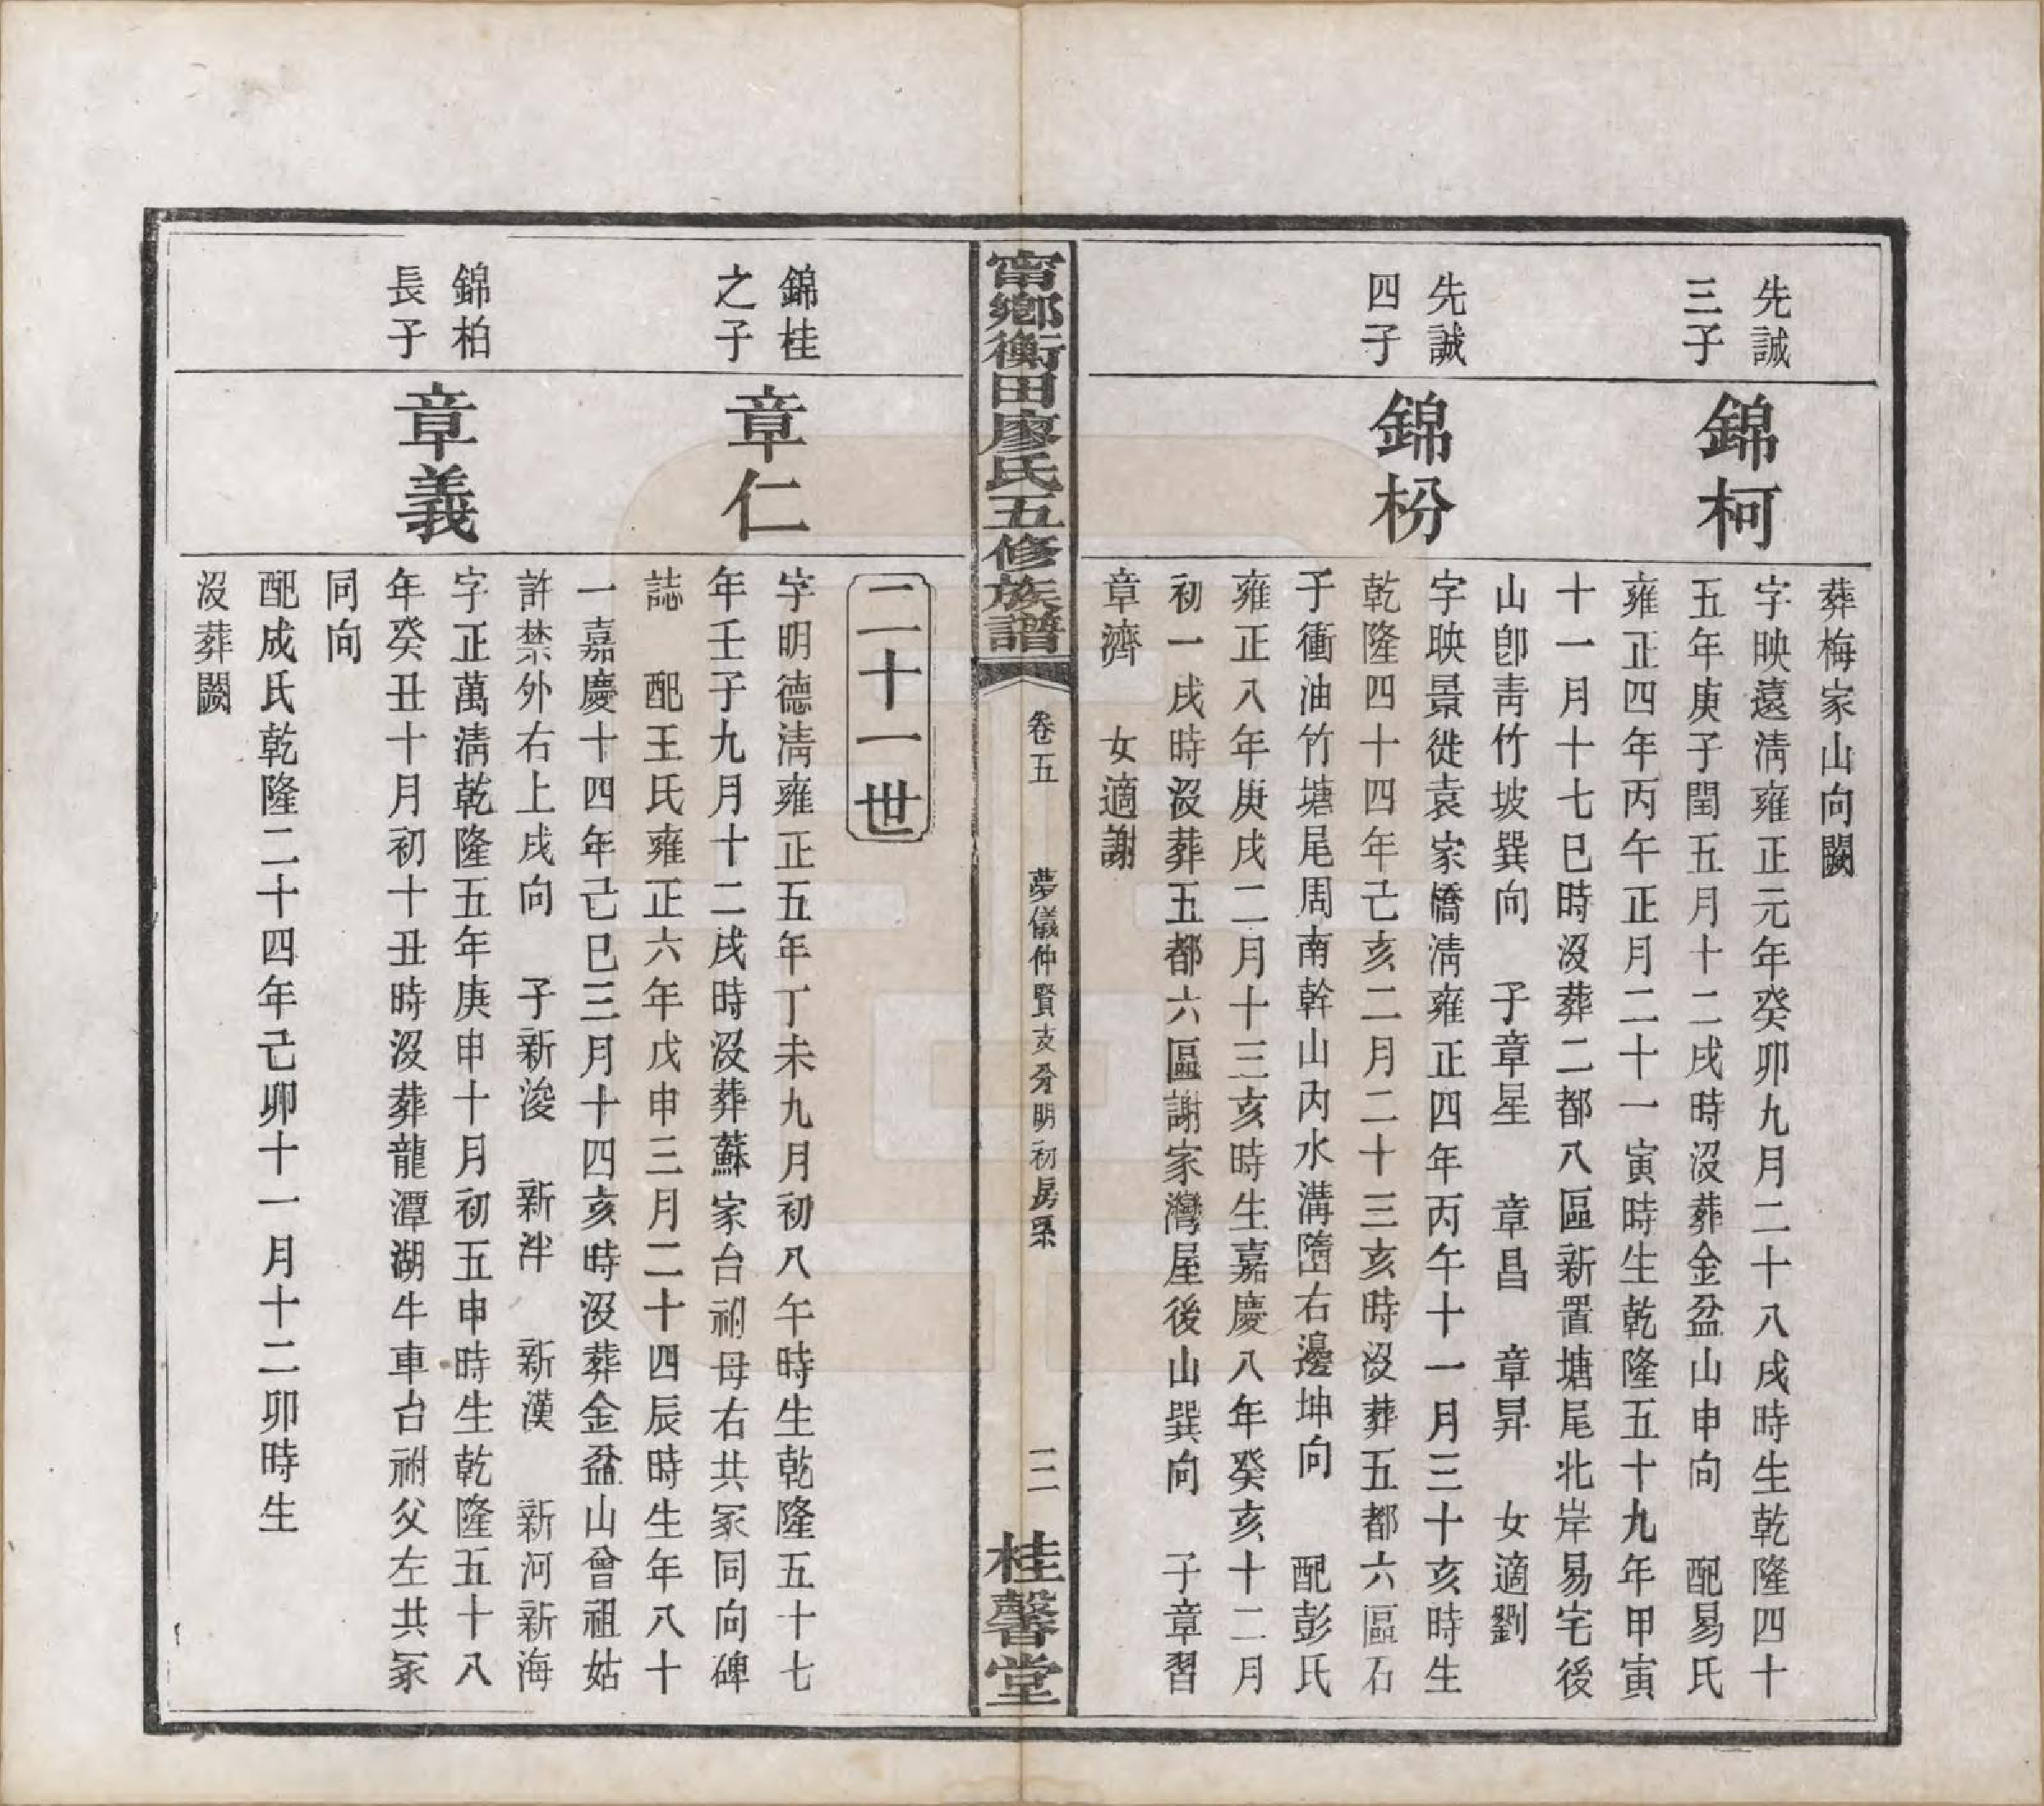 葬梅家山向闕
先誠
三子
錦柯
字映遠淸雍正元年癸卯九月二十八戌時生乾隆四十
五年庚子閏五月十二戌時沒葬金盆山申向　配易氏
雍正四年丙午正月二十一寅時生乾隆五十九年甲寅
十一月十七巳時沒葬二都八區新置塘尾北岸易宅後
山卽靑竹坡巽向　子章星　章昌　章昇　女適劉
先誠
四子
錦枌
字映景徙袁家橋淸雍正四年丙午十一月三十亥時生
乾隆四十四年己亥二月二十三亥時沒葬五都六區石
子衝油竹塘尾周南幹山內水溝墮右邊坤向　配彭氏
雍正八年庚戌二月十三亥時生嘉慶八年癸亥十二月
初一戌時沒葬五都六區謝家灣屋後山巽向　子章習
章濟　女適謝
甯鄉衡田廖氏五修族譜
卷五
夢儀仲賢支分明初房系
二
桂馨堂
二十一世
錦桂
之子
章仁
字明德淸雍正五年丁未九月初八午時生乾隆五十七
年壬子九月十二戌時沒葬蘇家台祔母右共冢同向碑
誌　配王氏雍正六年戊申三月二十四辰時生年八十
一嘉慶十四年己巳三月十四亥時沒葬金盆山曾祖姑
許禁外右上戌向　子新浚　新泮　新漢　新河新海
錦柏
長子
章義
字正萬淸乾隆五年庚申十月初五申時生乾隆五十八
年癸丑十月初十丑時沒葬龍潭湖牛車台祔父左共冢
同向
配成氏乾隆二十四年己卯十一月十二卯時生
沒葬闕